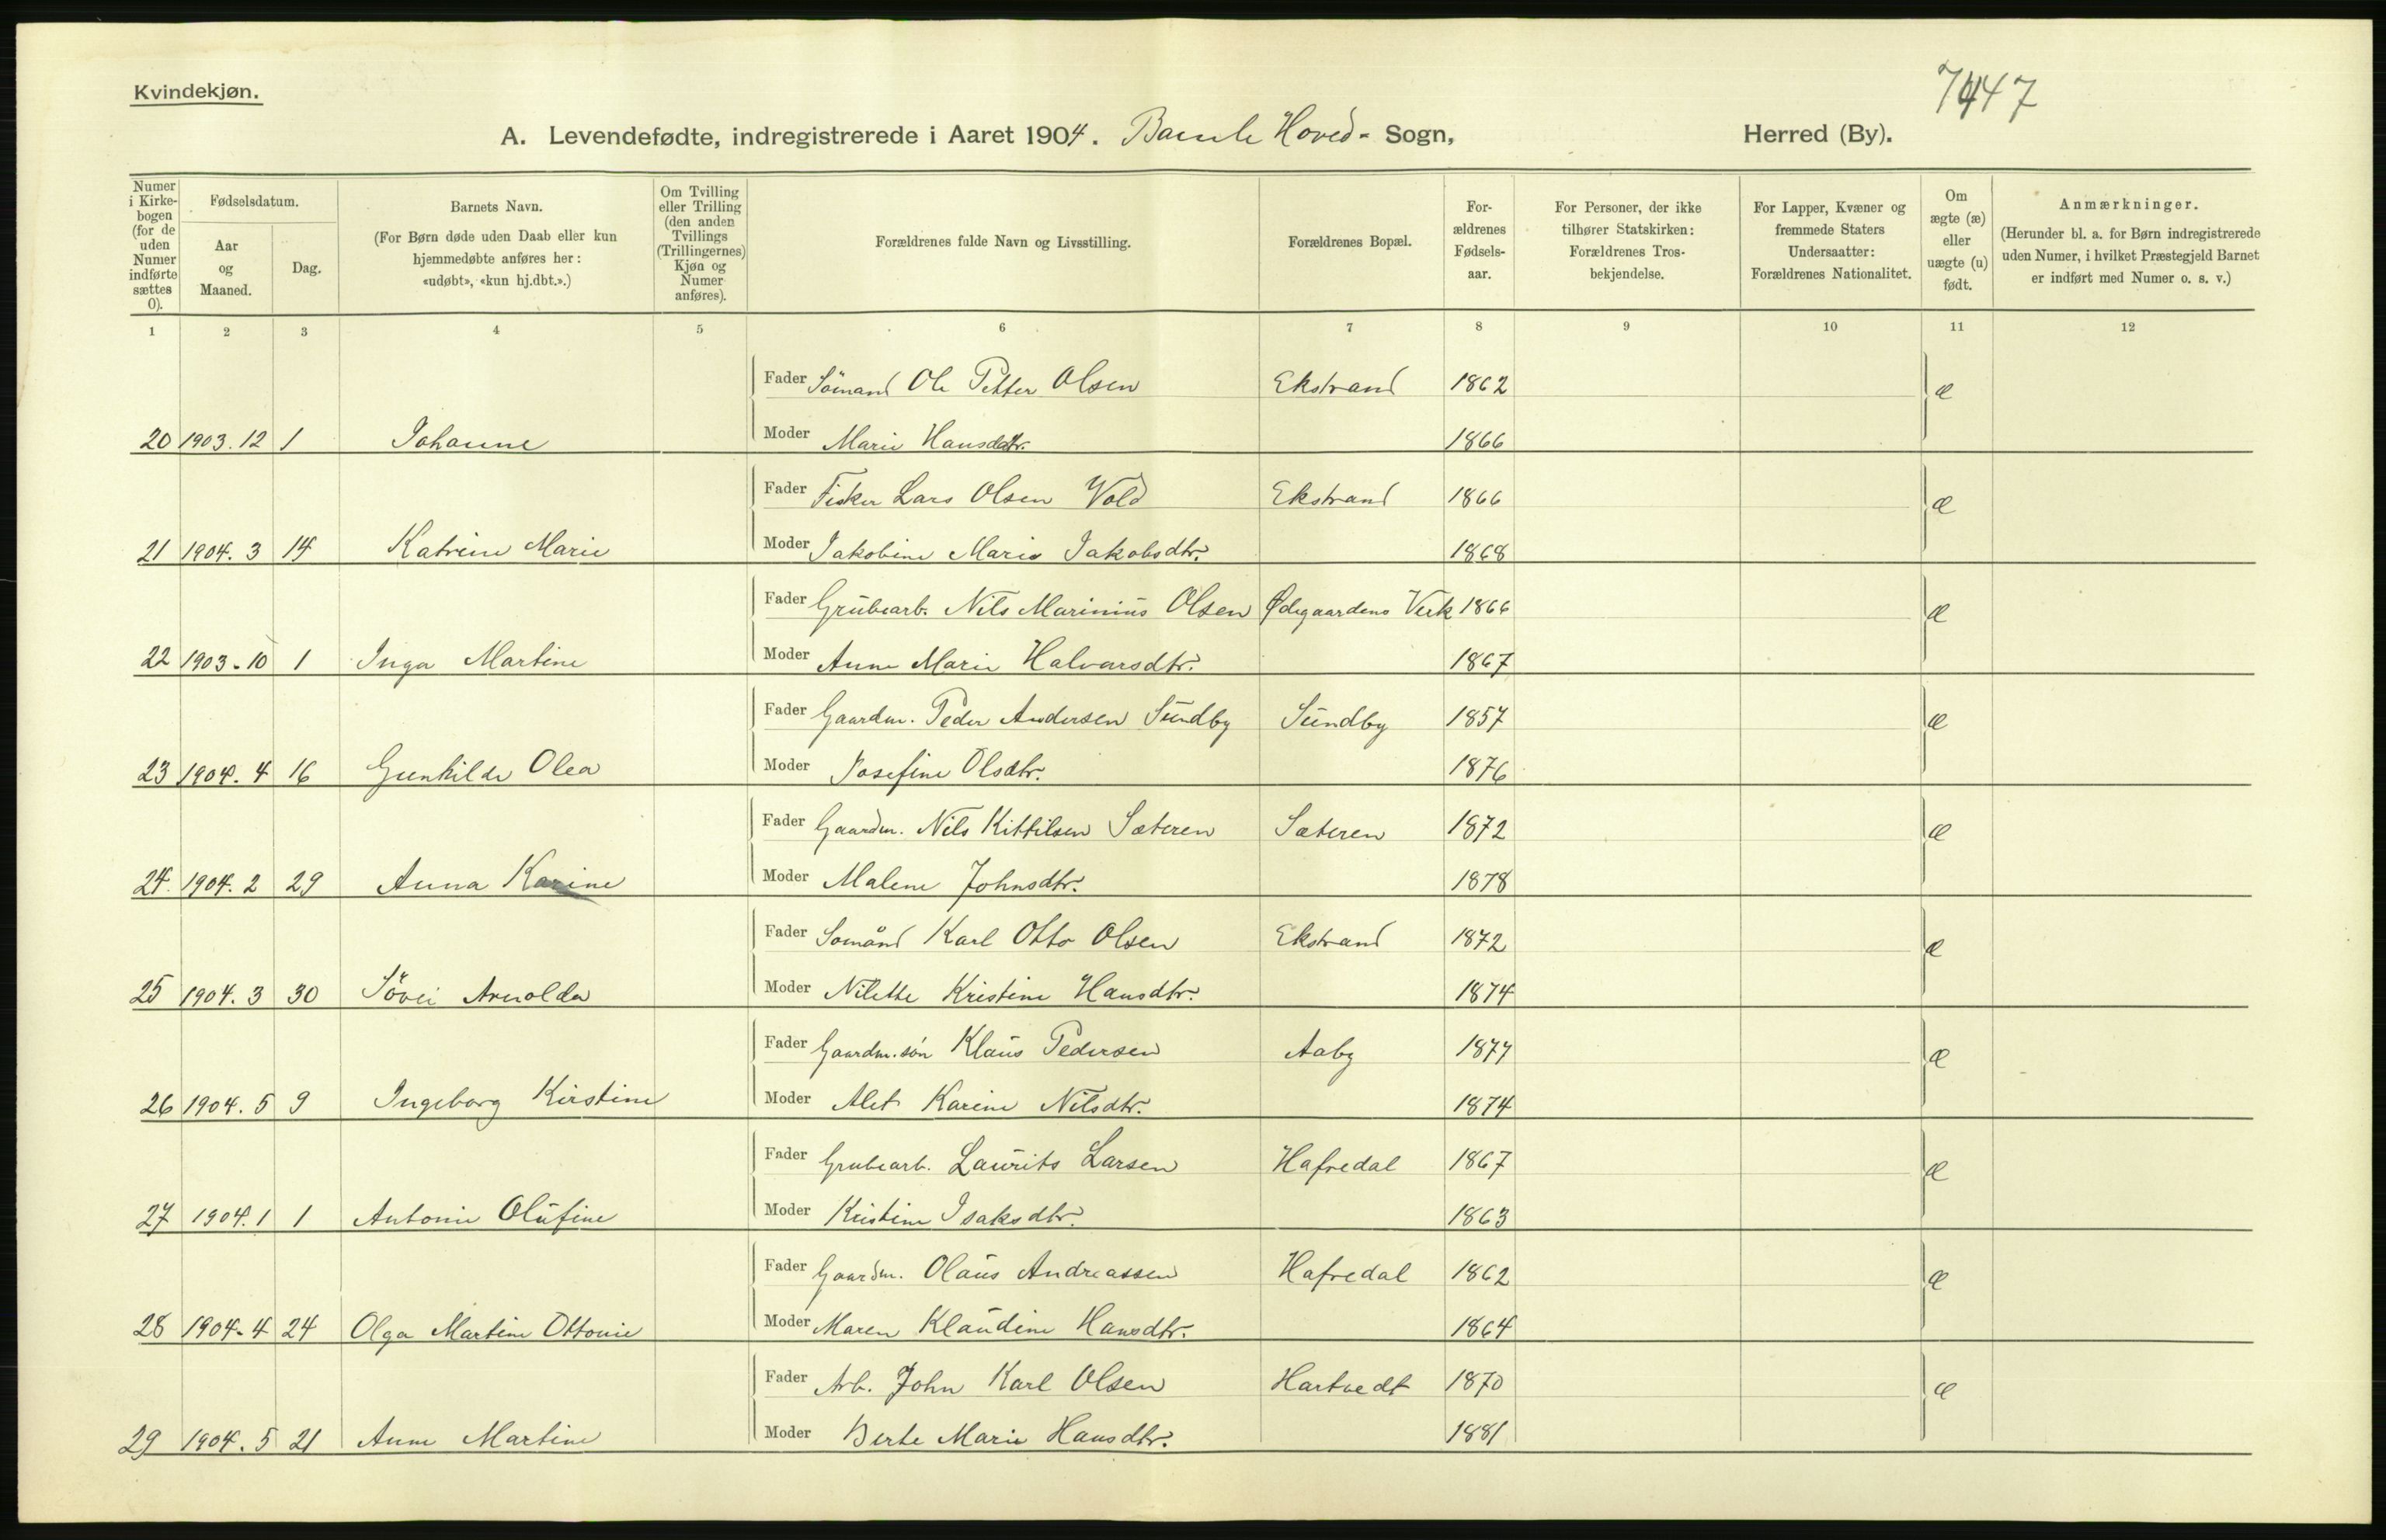 Kvindekjøn.
7447
A. Levendefødte, indregistrerede i Aaret 1904. Bamle Hoved- Sogn, Herred (By).
Numer i Kirke-bogen (for de uden Numer indførte sættes 0).
Fødselsdatum.
Aar og Maaned.
Dag.
Barnets Navn.
(For Børn døde uden Daab eller kun hjemmedøbte anføres her: «udøbt», «kun hj.dbt.».)
Om Tvilling eller Trilling (den anden Tvillings (Trillingernes) Kjøn og Numer anføres).
Forældrenes fulde Navn og Livsstilling.
Forældrenes Bopæl.
For-ældrenes Fødsels-aar.
For Personer, der ikke tilhører Statskirken: Forældrenes Tros-bekjendelse.
For Lapper, Kvæner og fremmede Staters Undersaatter: Forældrenes Nationalitet.
Om ægte (æ) eller uægte (u) født.
Anmærkninger.
(Herunder bl. a. for Børn indregistrerede uden Numer, i hvilket Præstegjeld Barnet er indført med Numer o. s. v.)
1 2 3 4 5 6 7 8 9 10 11 12
Fader Sömand Ole Petter Olsen Ekstrand 1862 æ
20 1903. 12 1 Johanne Moder Marie Hansdatr. 1866
Fader Fisker Lars Olsen Vold Ekstrand 1866 æ
21 1904. 3 14 Katrine Marie Moder Jakobine Marie Jakobsdtr. 1868
Fader Grubearb. Nils Marinius Olsen Ødegaardens Verk 1866 æ
22 1903. 10 1 Inga Martine Moder Anne Marie Halvarsdtr. 1867
Fader Gaardm. Peder Andersen Sundby Sundby 1857 æ
23 1904. 4 16 Gunhilde Olea Moder Josefine Olsdtr. 1876
Fader Gaardm. Nils Kittilsen Sæteren Sæteren 1872 æ
24. 1904. 2 29 Anna Karine Moder Malene Johnsdtr. 1878
Fader Somand Karl Otto Olsen Ekstrand 1872 æ
25 1904. 3 30 Sövei Arnolda Moder Nilette Kristine Hansdtr. 1874
Fader Gaardm.sön Klaus Pedersen Aaby 1877 æ
26 1904. 5 9 Ingeborg Kirstine Moder Alet Karine Nilsdtr. 1874
Fader Grubearb. Laurits Larsen Hafredal 1867 æ
27 1904. 1 1 Antonie Olufine Moder Kristine Isaksdtr. 1863
Fader Gaardm. Olaus Andreassen Hafredal 1862 æ
28 1904. 4 24 Olga Martine Ottonie Moder Maren Klaudine Hansdtr. 1864
Fader Arb. John Karl Olsen Hartvedt 1870 æ
29 1904. 5 21 Anne Martine Moder Berte Marie Hansdtr. 1881